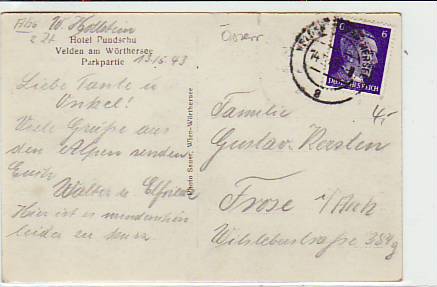 W. Kollstein
z Zt.
Hotel Pundschu
Velden am Wörthersee
Parkpartie
13/6.43
Liebe Tante u
Onkel!
Viele Grüße aus
den Alpen senden
Euch
Walter u Elfriede
Hier ist es wunderschön
leider zu kurz.
Photo Sauer, Wien-Wörthersee
Österr
6
6
Familie
Gustav Kersten
Frose i/Anh
Wilslebenstraße 384g
4,-